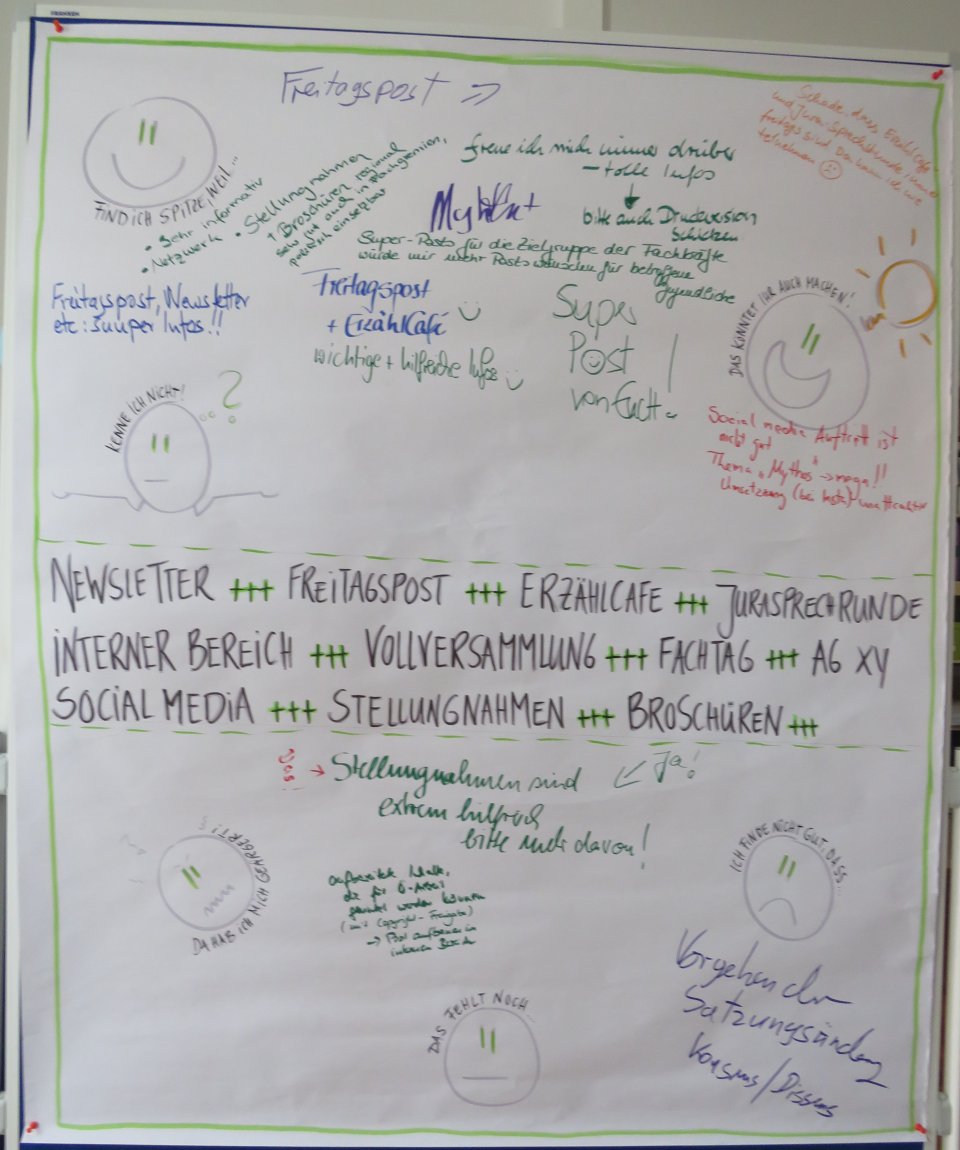 Freitagspost
FIND ICH SPITZE, WEIL...
• sehr informativ
• Netzwerk
• Stellungnahmen
+ Broschüren regional
sehr gut auch in Fachgremien,
politisch einsetzbar
freue ich mich immer drüber
– tolle Infos
bitte auch Druckversion
schicken
Schade, dass Erzählcafe
und Jura-Sprechstunde immer
freitags sind. Da kann ich nie
teilnehmen
Super-Posts für die Zielgruppe der Fachkräfte
würde mir mehr Posts wünschen für betroffene
Jugendliche
Freitagspost, Newsletter
etc: Suuper Infos!!
Freitagspost
+ ErzählCafé
wichtige + hilfreiche Infos
Super
Post
von Euch
DAS KÖNNTET IHR AUCH MACHEN!
KENNE ICH NICHT!
?
Social media Auftritt ist
nicht gut
Thema "Mythos" → mega!!
Umsetzung (bei Insta) unattraktiv
NEWSLETTER +++ FREITAGSPOST +++ ERZÄHLCAFE +++ JURASPRECHRUNDE
INTERNER BEREICH +++ VOLLVERSAMMLUNG +++ FACHTAG +++ AG XY
SOCIAL MEDIA +++ STELLUNGNAHMEN +++ BROSCHÜREN +++
→ Stellungnahmen sind
extrem hilfreich
bitte mehr davon!
Ja!
DA HAB ICH MICH GEÄRGERT!
aufbereitete Inhalte,
die für Ö-Arbeit
genutzt werden können
(mit Copyright-Freigabe)
→ Pool aufbauen im
internen Bereich
ICH FINDE NICHT GUT, DASS...
Vorgehen der
Satzungsänderung
Konsens/Dissens
DAS FEHLT NOCH...